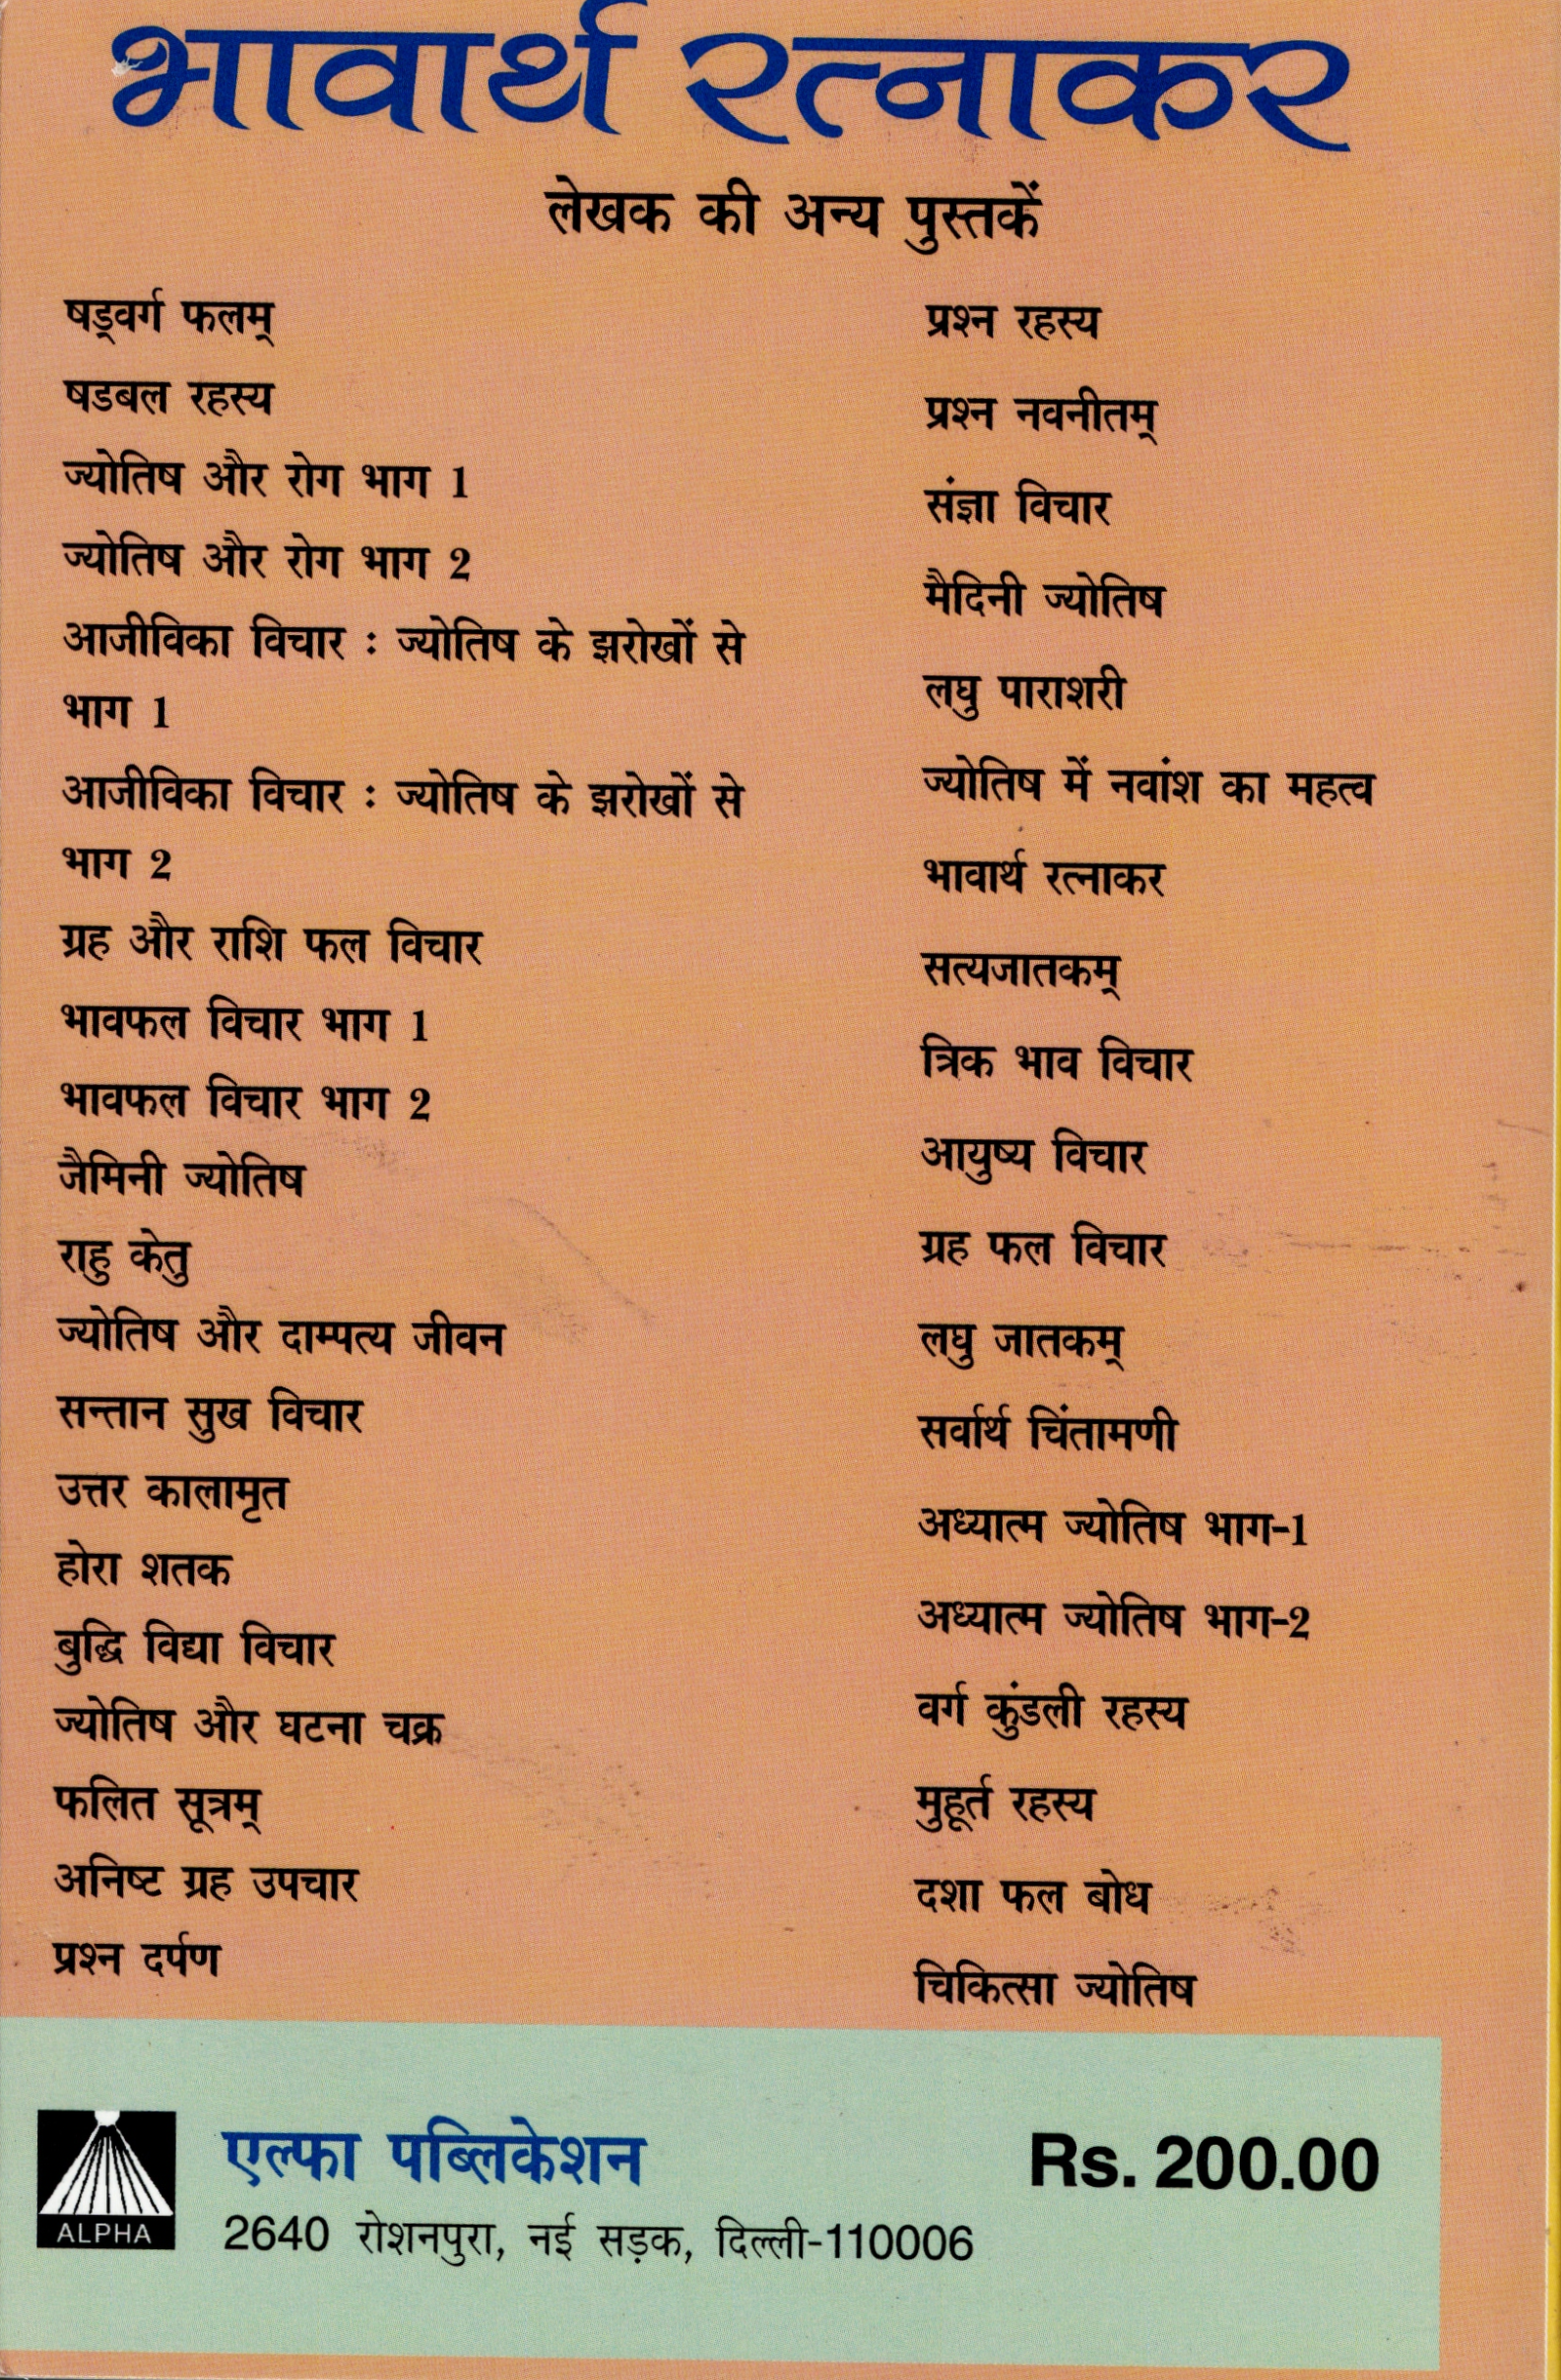 भावार्थ रत्नाकर
लेखक की अन्य पुस्तकें
षड्वर्ग फलम्
षडबल रहस्य
ज्योतिष और रोग भाग 1
ज्योतिष और रोग भाग 2
आजीविका विचार : ज्योतिष के झरोखों से
भाग 1
आजीविका विचार : ज्योतिष के झरोखों से
भाग 2
ग्रह और राशि फल विचार
भावफल विचार भाग 1
भावफल विचार भाग 2
जैमिनी ज्योतिष
राहु केतु
ज्योतिष और दाम्पत्य जीवन
सन्तान सुख विचार
उत्तर कालामृत
होरा शतक
बुद्धि विद्या विचार
ज्योतिष और घटना चक्र
फलित सूत्रम्
अनिष्ट ग्रह उपचार
प्रश्न दर्पण
प्रश्न रहस्य
प्रश्न नवनीतम्
संज्ञा विचार
मैदिनी ज्योतिष
लघु पाराशरी
ज्योतिष में नवांश का महत्व
भावार्थ रत्नाकर
सत्यजातकम्
त्रिक भाव विचार
आयुष्य विचार
ग्रह फल विचार
लघु जातकम्
सर्वार्थ चिंतामणी
अध्यात्म ज्योतिष भाग-1
अध्यात्म ज्योतिष भाग-2
वर्ग कुंडली रहस्य
मुहूर्त रहस्य
दशा फल बोध
चिकित्सा ज्योतिष
ALPHA
एल्फा पब्लिकेशन
2640 रोशनपुरा, नई सड़क, दिल्ली-110006
Rs. 200.00